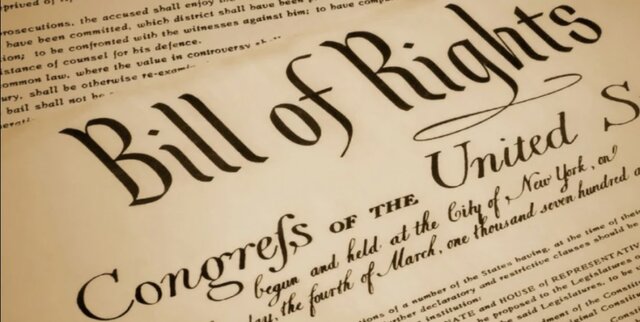 prived of
rosecutions, the accused shall enjoy the
have been committed, which district shall have been p
ion; to be confronted with the witnesses against him; to have comp
istance of counsel for his defence.
ommon law, where the value in controversy shall
ury, shall be otherwise re-exami
bail shall not be
Bill of Rights
Congreſs OF THE United S
begun and held at the City of New York, on
day, the fourth of March, one thousand seven hundred a
ions of a number of the States having, at the time of the
rther declaratory and restrictive clauses should be
institution:
ATE and HOUSE of REPRESENTATI
be proposed to the Legislatures of
said Legislatures, to be
ment of the Constitu
ginal Constitut